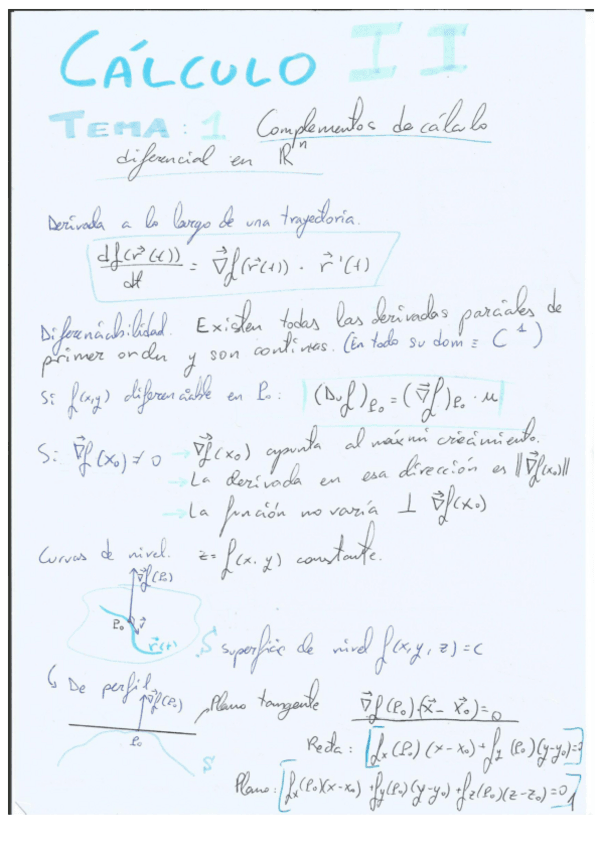 CÁLCULO II
TEMA: 1 Complementos de cálculo
diferencial en ℝⁿ
Derivada a lo largo de una trayectoria.
df(r⃗(t))/dt = ∇⃗f(r⃗(t)) · r⃗'(t)
Diferenciabilidad. Existen todas las derivadas parciales de
primer orden y son continuas. (En todo su dom ≡ C¹)
Si f(x,y) diferenciable en P₀: (Duf)P₀ = (∇⃗f)P₀ · u
Si ∇⃗f(x₀) ≠ 0 → ∇⃗f(x₀) apunta al máximi crecimiento.
→ La derivada en esa dirección es ||∇⃗f(x₀)||
→ La función no varía ⊥ ∇⃗f(x₀)
Curvas de nivel. z = f(x,y) constante.
∇⃗f(P₀)
P₀
v⃗
r⃗(t)
S superficie de nivel f(x,y,z) = c
↳ De perfil
∇⃗f(P₀)
P₀
S
Plano tangente ∇⃗f(P₀)(x⃗ - x⃗₀) = 0
Recta: [fx(P₀)(x-x₀) + fy(P₀)(y-y₀) = 0]
Plano: [fx(P₀)(x-x₀) + fy(P₀)(y-y₀) + fz(P₀)(z-z₀) = 0]
1